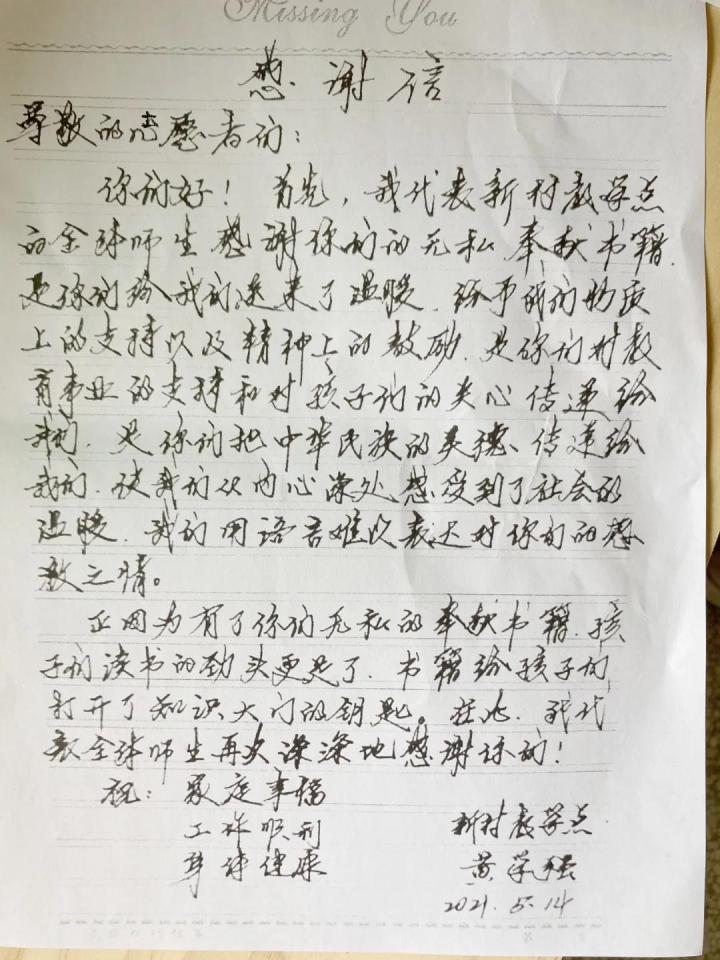 Missing You
感谢信
尊敬的志愿者们：
你们好！首先，我代表新村教学点
的全体师生感谢你们的无私奉献书籍.
是你们给我们送来了温暖.给予我们物质
上的支持以及精神上的鼓励.是你们对教
育事业的支持和对孩子们的关心传递给
我们.是你们把中华民族的美德、传递给
我们.使我们从内心深处感受到了社会的
温暖.我们用语言难以表达对你们的感
激之情。
正因为有了你们无私的奉献书籍.孩
子们读书的劲头更足了.书籍给孩子们
打开了知识大门的钥匙。在此.我代
表全体师生再次深深地感谢你们！
祝：家庭幸福
工作顺利
身体健康
新村教学点
黄学强
2021.5.14